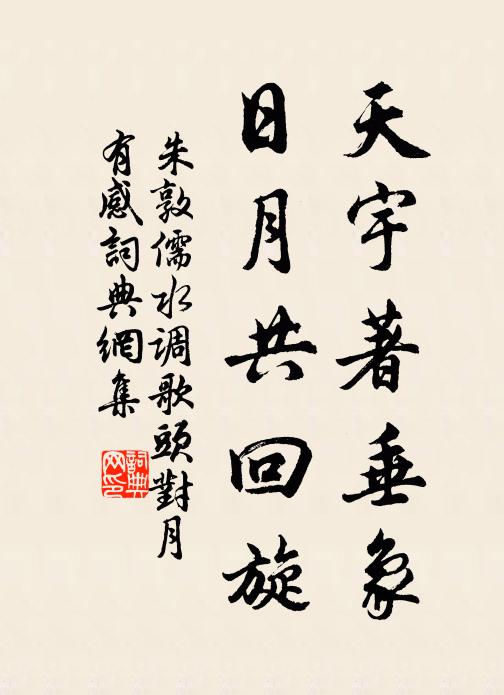 天宇著垂象
日月共回旋
朱敦儒水调歌頭對月
有感詞典網集
詞典
网印